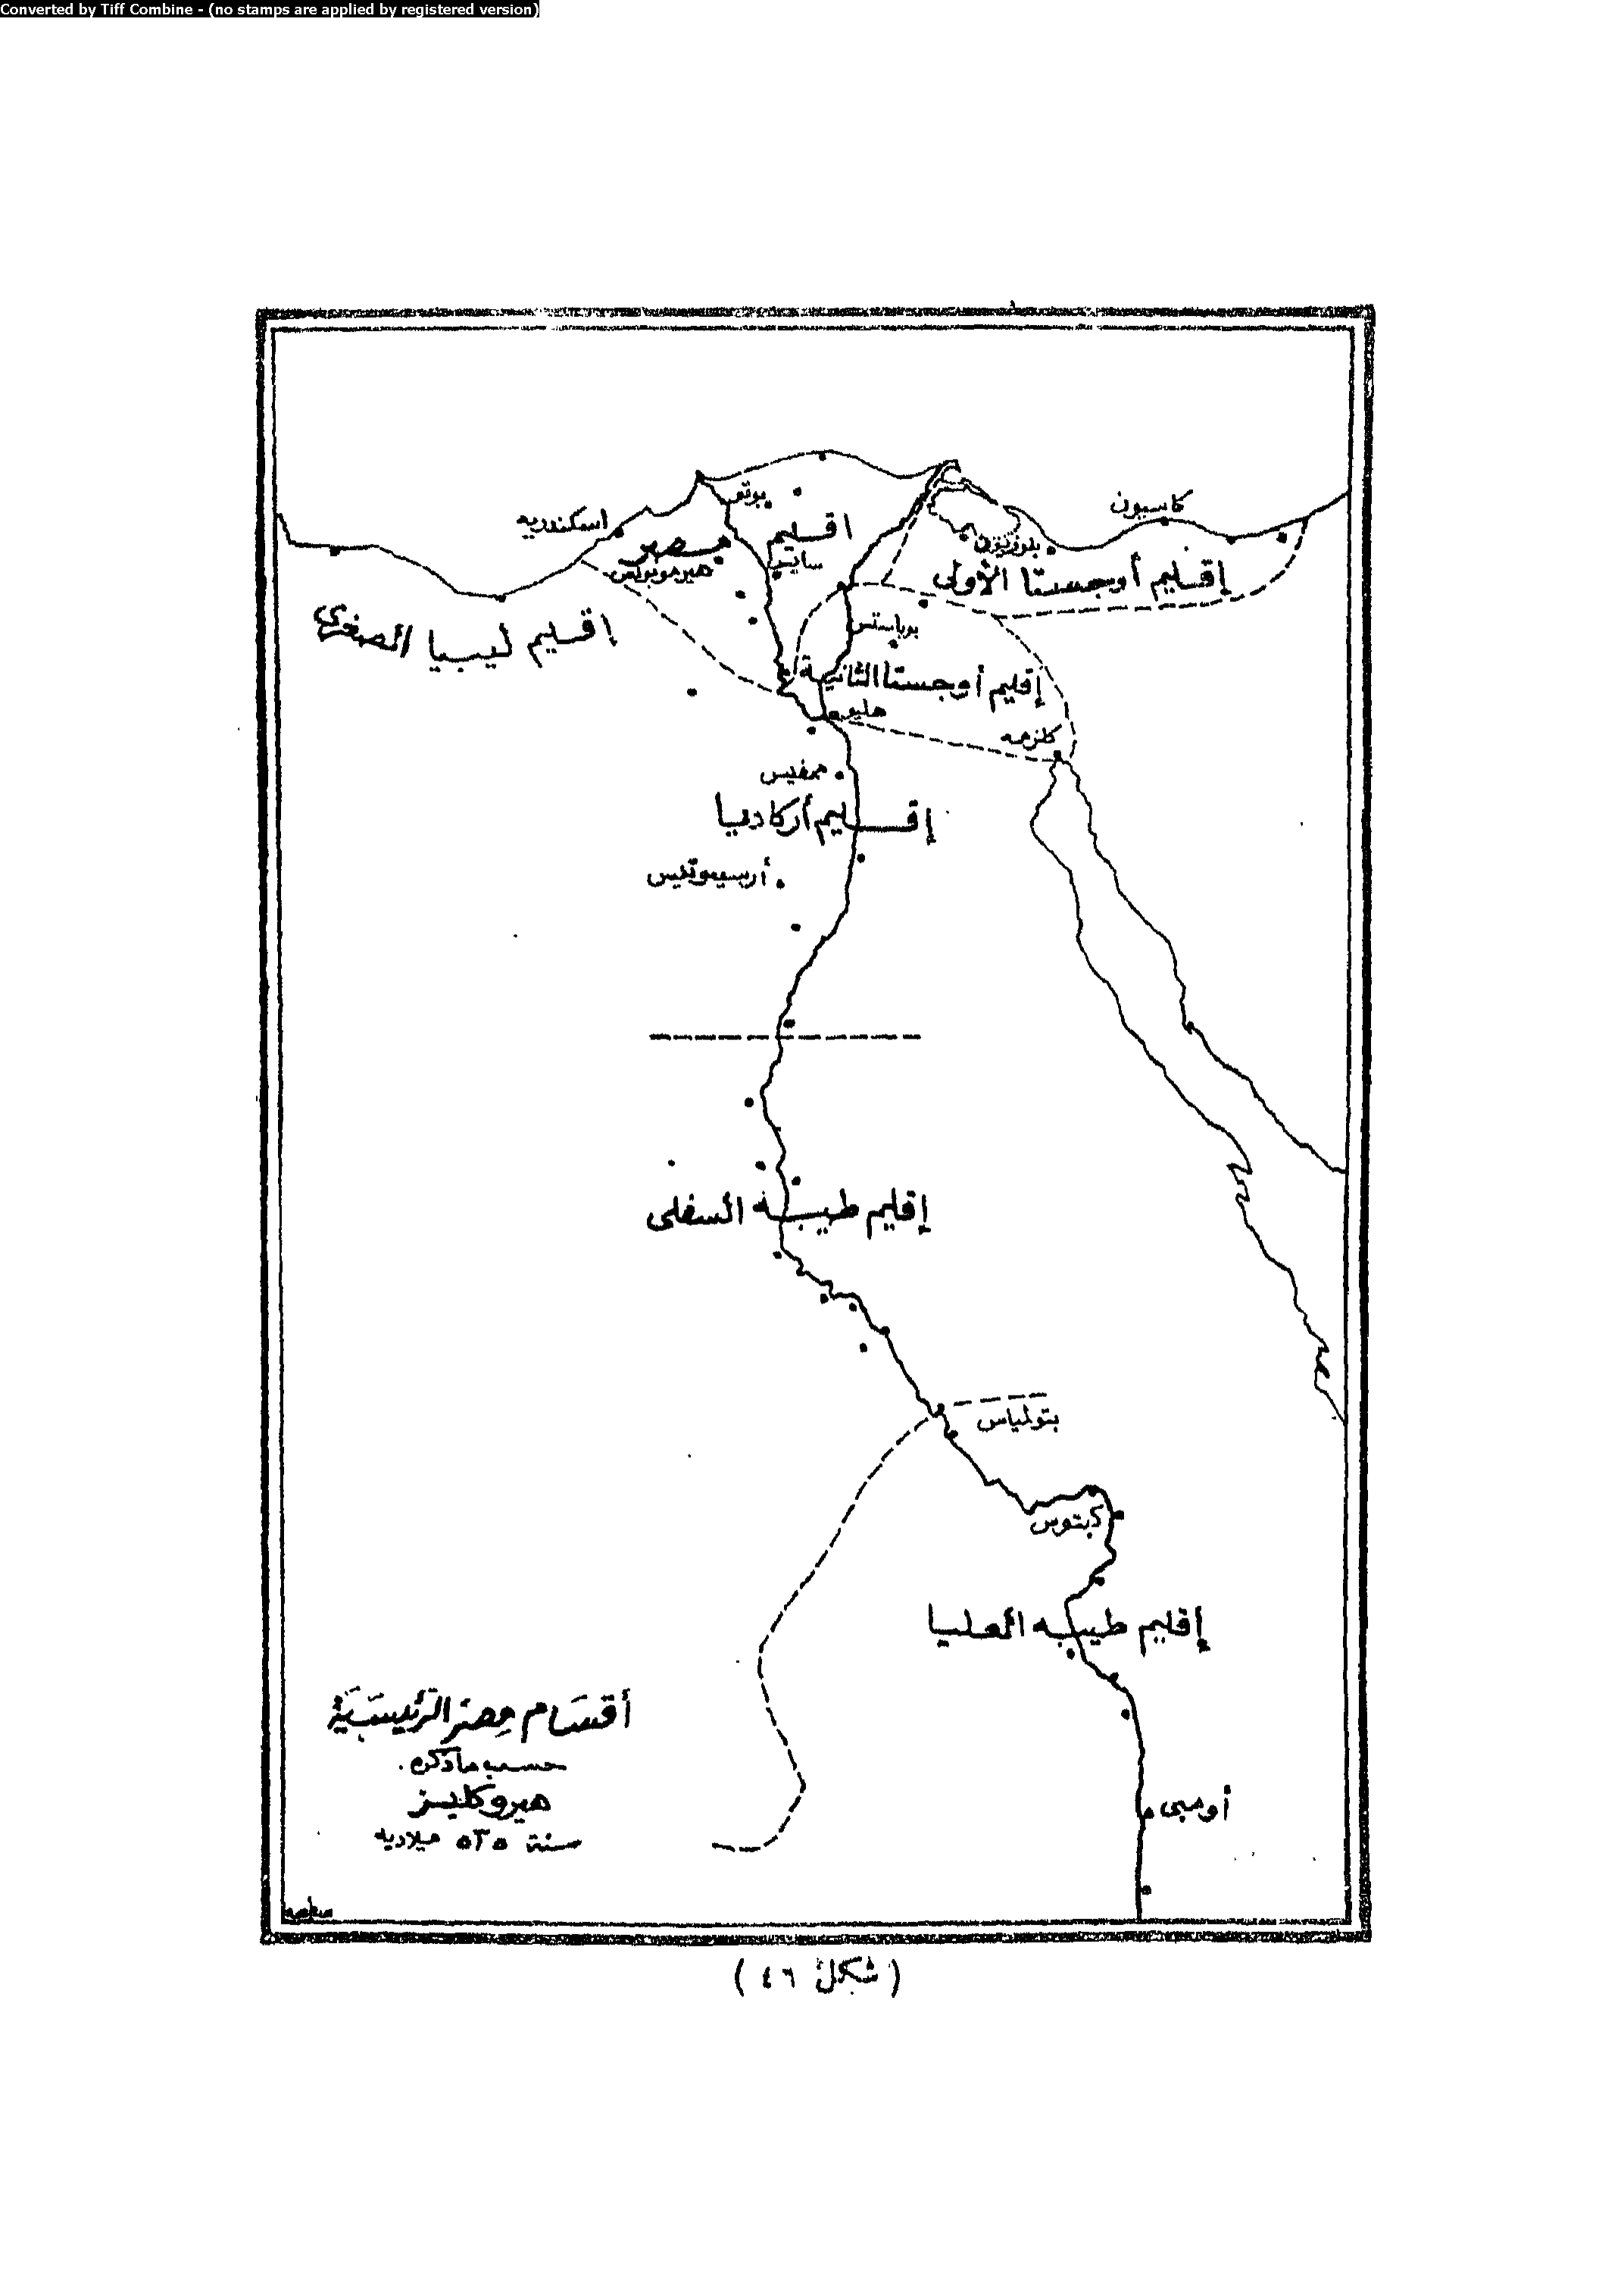 Converted by Tiff Combine - (no stamps are applied by registered version)
كاسيون
بوتو
اسكندرية
اقليم
مصر
سايس
بلوزيزن
هيرموبولس
إقليم أوجستا الأولى
إقليم ليبيا الصغرى
بوباستس
إقليم أوجستا الثانية
هليو
كلزمه
ممفيس
إقليم أركاديا
أرسينوتيس
إقليم طيبة السفلى
بتولمياس
كبتوس
إقليم طيبه العليا
أومبى
أقسَام مِصر الرَئيسَية
حسب ما ذكره
هيروكليز
سنة ٥٣٥ ميلاديه
( شكل ٤٦ )